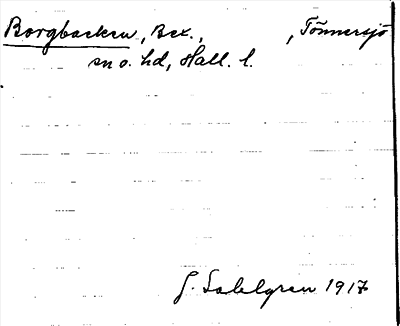 Borgbacken, Bex., , Tönnersjö
sn o. hd, Hall. l.
G. Sahlgren 1917